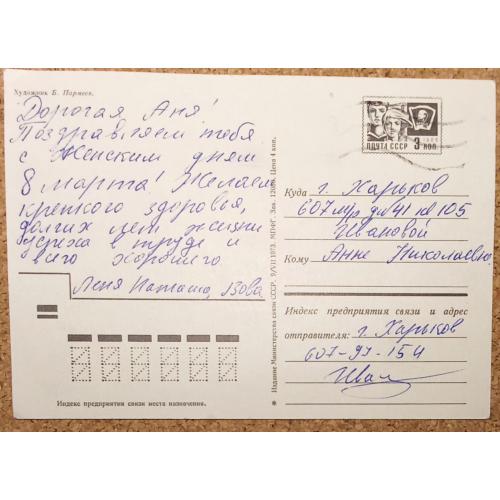 Художник Б. Пармеев.
Дорогая Аня!
Поздравляем тебя
с Женским днём
8 марта! Желаем
крепкого здоровья,
долгих лет жизни
успеха в труде и
всего хорошего.
Лёня Наташа, Вова
Индекс предприятия связи места назначения.
Издание Министерства связи СССР. 9/VII 1973. МПФГ. Зак. Цена 4 коп.
ПОЧТА СССР 3 коп
Куда г. Харьков
607 м/р д 41 кв 105
Ивановой
Кому Анне Николаевне
Индекс предприятия связи и адрес
отправителя: г. Харьков
607-97-154